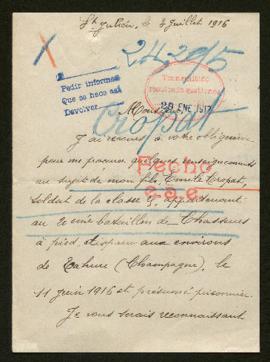 St Julien, le 4 Juillet 1916
242015
Pedir informes
Que se haga así
Devolver
28 ENE 1917
Monsieur
Cropat
J'ai recours à votre obligeance
pour me procurer quelques renseignements
Hecho
au sujet de mon fils, Emile Cropat,
soldat de la classe appartenant
au 2 ème bataillon de Chasseurs
à pied, disparu aux environs
de Tahure (Champagne), le
11 juin 1916 et présumé prisonnier.
Je vous serais reconnaissant